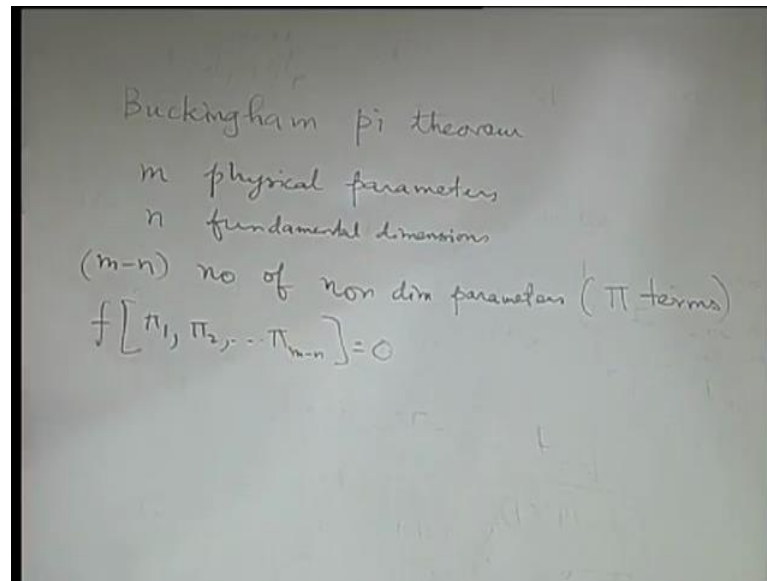 Buckingham pi theorem
m physical parameters
n fundamental dimensions
(m-n) no of non dim parameters (Π terms)
f[π₁, π₂,... π_{m-n}]=0